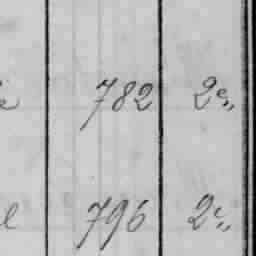 e 782 2e„
e 796 2e„